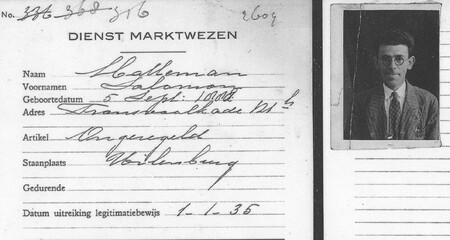 No. 336 368 316 2609
DIENST MARKTWEZEN
Naam Matteman
Voornamen Salomon
Geboortedatum 5 Sept:
Adres Transvaalkade 121 h
Artikel Ongeregeld
Staanplaats Uilenburg
Gedurende
Datum uitreiking legitimatiebewijs 1-1-35